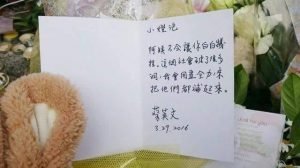 小燈泡
阿姨不會讓你白白犧
牲。這個社會破了很多
洞，我會用盡全力來
把他們都補起來。
蔡英文
3.29.2016